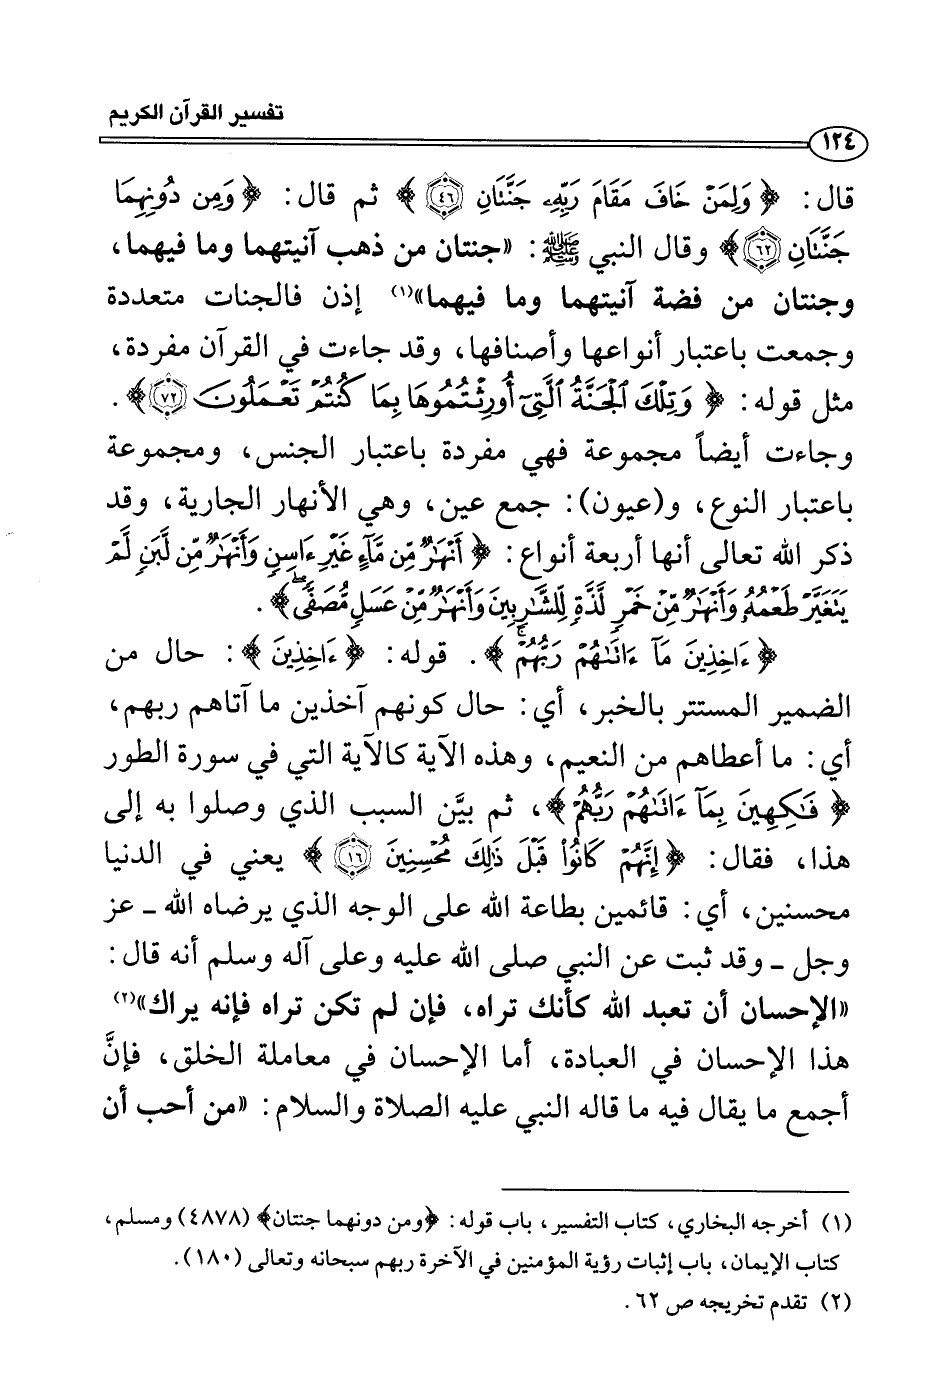 تفسير القرآن الكريم
١٢٤
قال: ﴿وَلِمَنْ خَافَ مَقَامَ رَبِّهِۦ جَنَّتَانِ ٤٦﴾ ثم قال: ﴿وَمِن دُونِهِمَا
جَنَّتَانِ ٦٢﴾ وقال النبي ﷺ: «جنتان من ذهب آنيتهما وما فيهما،
وجنتان من فضة آنيتهما وما فيهما»(١) إذن فالجنات متعددة
وجمعت باعتبار أنواعها وأصنافها، وقد جاءت في القرآن مفردة،
مثل قوله: ﴿وَتِلْكَ ٱلْجَنَّةُ ٱلَّتِىٓ أُورِثْتُمُوهَا بِمَا كُنتُمْ تَعْمَلُونَ ٧٢﴾.
وجاءت أيضاً مجموعة فهي مفردة باعتبار الجنس، ومجموعة
باعتبار النوع، و(عيون): جمع عين، وهي الأنهار الجارية، وقد
ذكر الله تعالى أنها أربعة أنواع: ﴿أَنْهَٰرٌ مِّن مَّآءٍ غَيْرِ ءَاسِنٍ وَأَنْهَٰرٌ مِّن لَّبَنٍ لَّمْ
يَتَغَيَّرْ طَعْمُهُۥ وَأَنْهَٰرٌ مِّنْ خَمْرٍ لَّذَّةٍ لِّلشَّٰرِبِينَ وَأَنْهَٰرٌ مِّنْ عَسَلٍ مُّصَفًّى ۖ﴾.
﴿ءَاخِذِينَ مَآ ءَاتَىٰهُمْ رَبُّهُمْ ۚ﴾. قوله: ﴿ءَاخِذِينَ﴾: حال من
الضمير المستتر بالخبر، أي: حال كونهم آخذين ما آتاهم ربهم،
أي: ما أعطاهم من النعيم، وهذه الآية كالآية التي في سورة الطور
﴿فَٰكِهِينَ بِمَآ ءَاتَىٰهُمْ رَبُّهُمْ﴾، ثم بيَّن السبب الذي وصلوا به إلى
هذا، فقال: ﴿إِنَّهُمْ كَانُوا۟ قَبْلَ ذَٰلِكَ مُحْسِنِينَ ١٦﴾ يعني في الدنيا
محسنين، أي: قائمين بطاعة الله على الوجه الذي يرضاه الله ـ عز
وجل ـ وقد ثبت عن النبي صلى الله عليه وعلى آله وسلم أنه قال:
«الإحسان أن تعبد الله كأنك تراه، فإن لم تكن تراه فإنه يراك»(٢)
هذا الإحسان في العبادة، أما الإحسان في معاملة الخلق، فإنَّ
أجمع ما يقال فيه ما قاله النبي عليه الصلاة والسلام: «من أحب أن
(١) أخرجه البخاري، كتاب التفسير، باب قوله: ﴿ومن دونهما جنتان﴾ (٤٨٧٨) ومسلم،
كتاب الإيمان، باب إثبات رؤية المؤمنين في الآخرة ربهم سبحانه وتعالى (١٨٠).
(٢) تقدم تخريجه ص ٦٢.